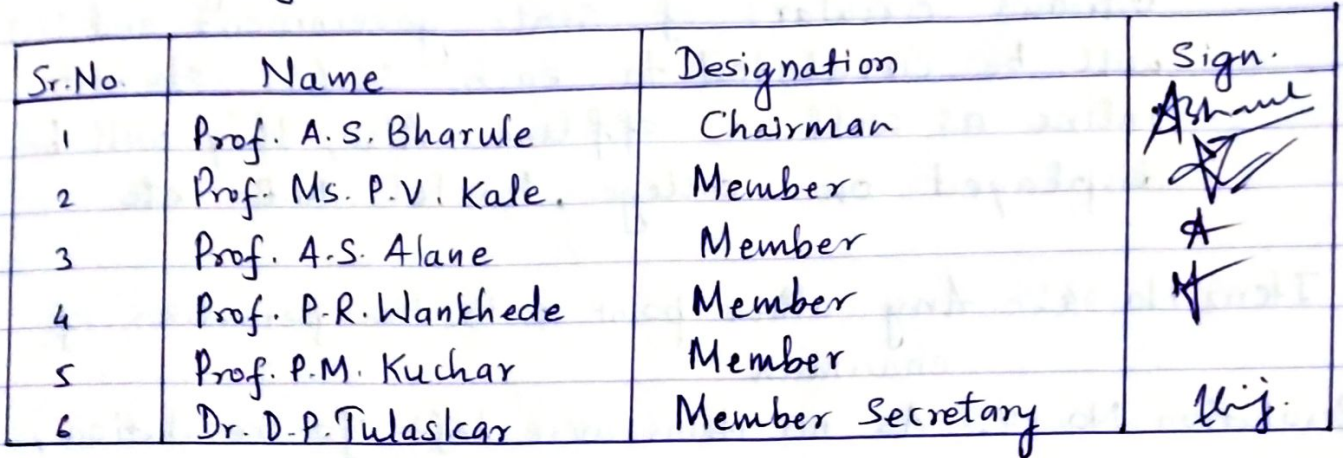 Sr.No. Name Designation Sign.
1 Prof. A.S. Bharule Chairman
2 Prof. Ms. P.V. Kale. Member
3 Prof. A.S. Alane Member
4 Prof. P.R. Wankhede Member
5 Prof. P.M. Kuchar Member
6 Dr. D.P. Tulaskar Member Secretary